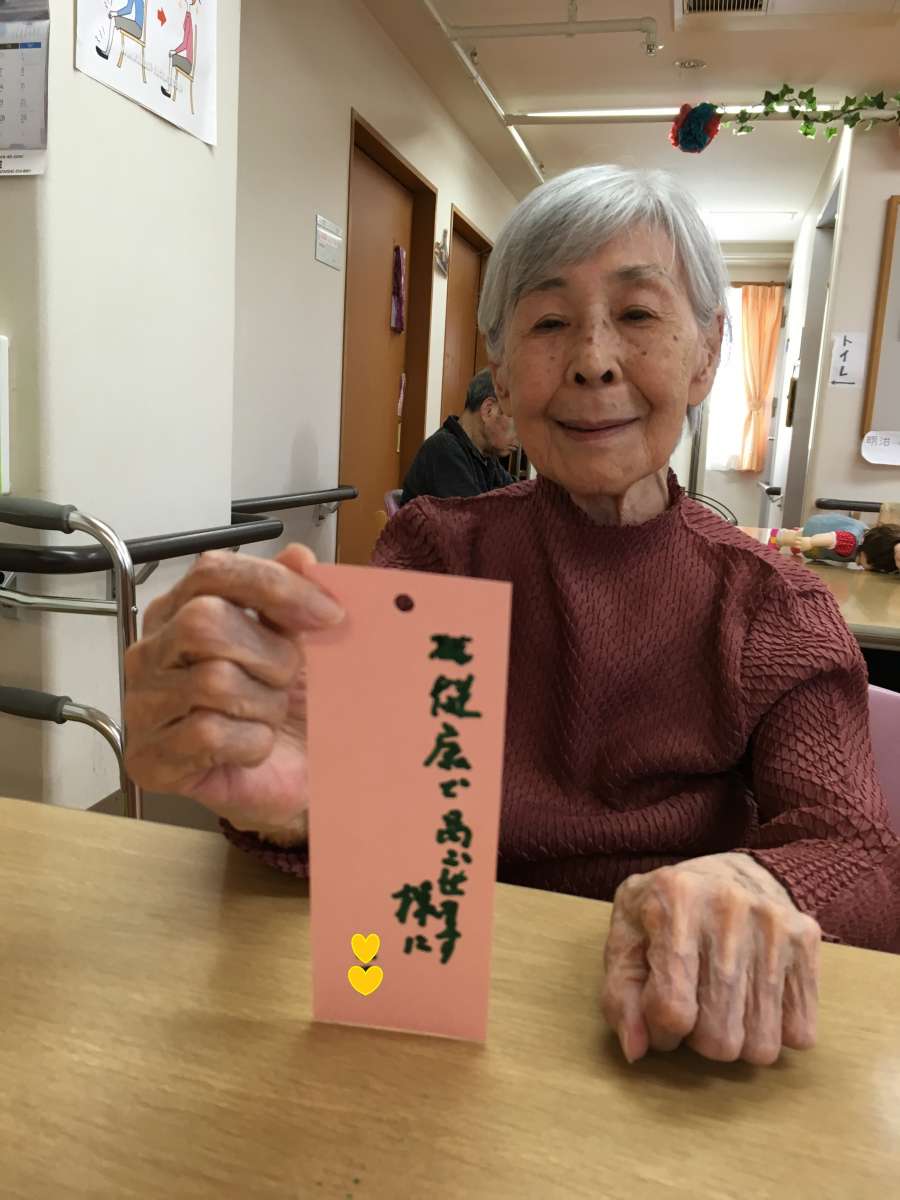 健康で過ごせます
様に
トイレ
明治